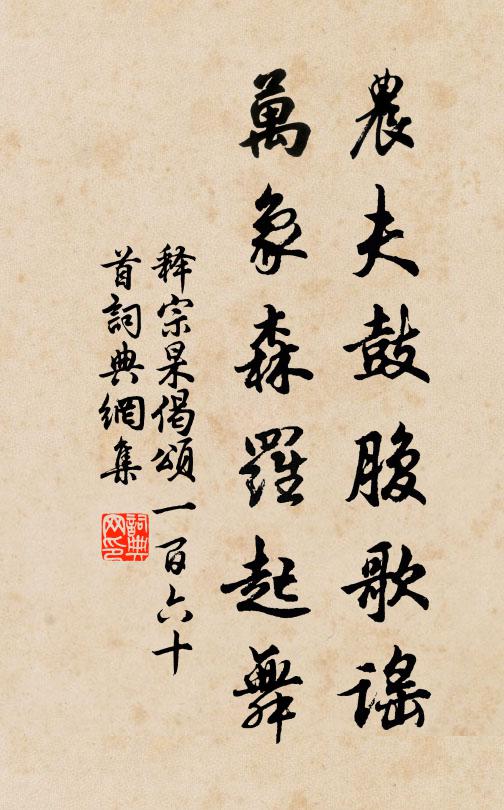 農夫鼓腹歌謠
萬象森羅起舞
释宗杲偈頌一百六十
首詞典網集
詞典
网印